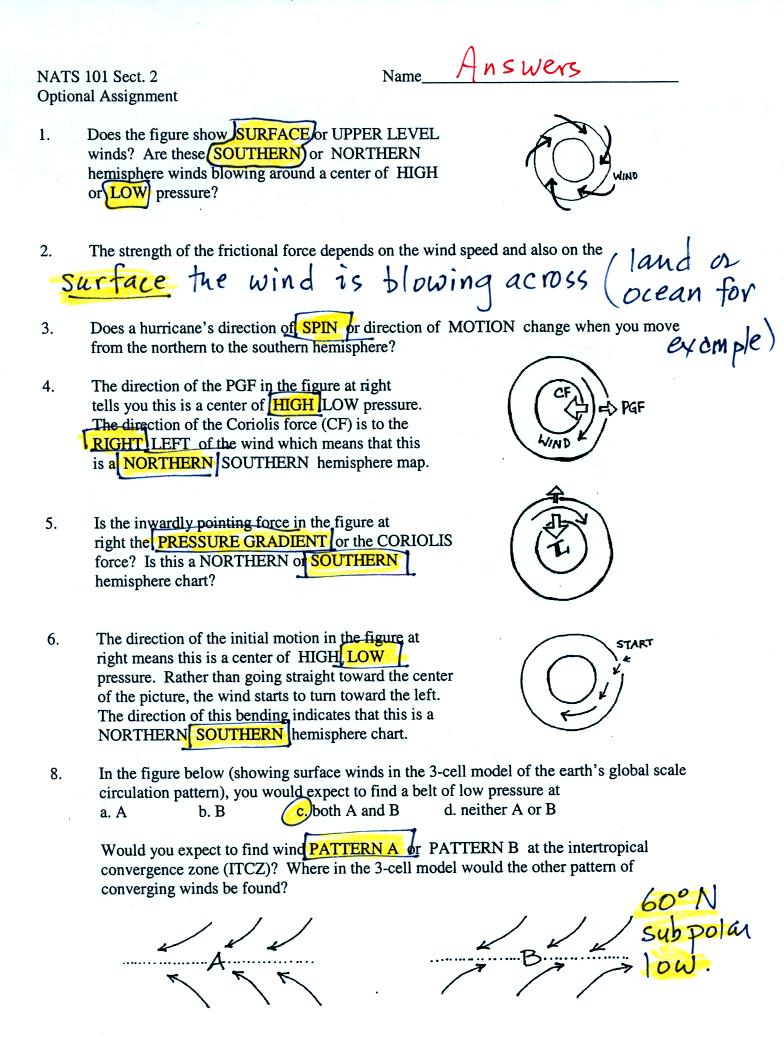 NATS 101 Sect. 2
Name Answers
Optional Assignment
1. Does the figure show SURFACE or UPPER LEVEL
winds? Are these SOUTHERN or NORTHERN
hemisphere winds blowing around a center of HIGH
or LOW pressure?
WIND
2. The strength of the frictional force depends on the wind speed and also on the
surface the wind is blowing across (land or
ocean for
example)
3. Does a hurricane's direction of SPIN or direction of MOTION change when you move
from the northern to the southern hemisphere?
4. The direction of the PGF in the figure at right
tells you this is a center of HIGH LOW pressure.
The direction of the Coriolis force (CF) is to the
RIGHT LEFT of the wind which means that this
is a NORTHERN SOUTHERN hemisphere map.
CF
PGF
WIND
5. Is the inwardly pointing force in the figure at
right the PRESSURE GRADIENT or the CORIOLIS
force? Is this a NORTHERN or SOUTHERN
hemisphere chart?
L
6. The direction of the initial motion in the figure at
right means this is a center of HIGH LOW
pressure. Rather than going straight toward the center
of the picture, the wind starts to turn toward the left.
The direction of this bending indicates that this is a
NORTHERN SOUTHERN hemisphere chart.
START
8. In the figure below (showing surface winds in the 3-cell model of the earth's global scale
circulation pattern), you would expect to find a belt of low pressure at
a. A b. B c. both A and B d. neither A or B
Would you expect to find wind PATTERN A or PATTERN B at the intertropical
convergence zone (ITCZ)? Where in the 3-cell model would the other pattern of
converging winds be found?
60° N
subpolar
low.
A
B